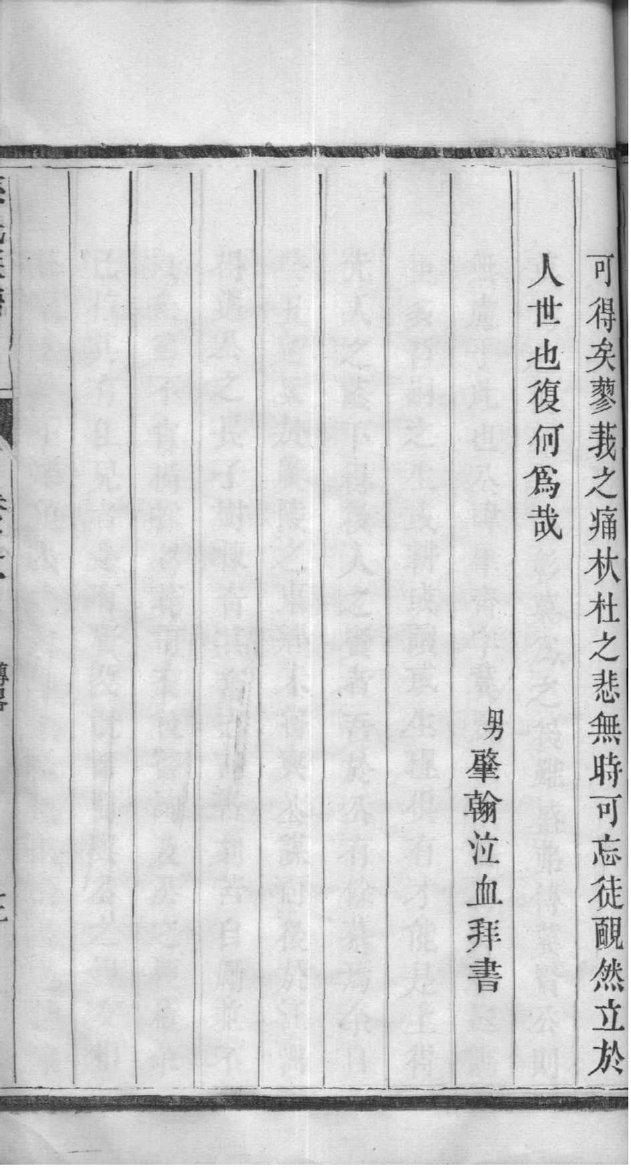 可得矣蓼莪之痛杕杜之悲無時可忘徒靦然立於
人世也復何爲哉
男肇翰泣血拜書